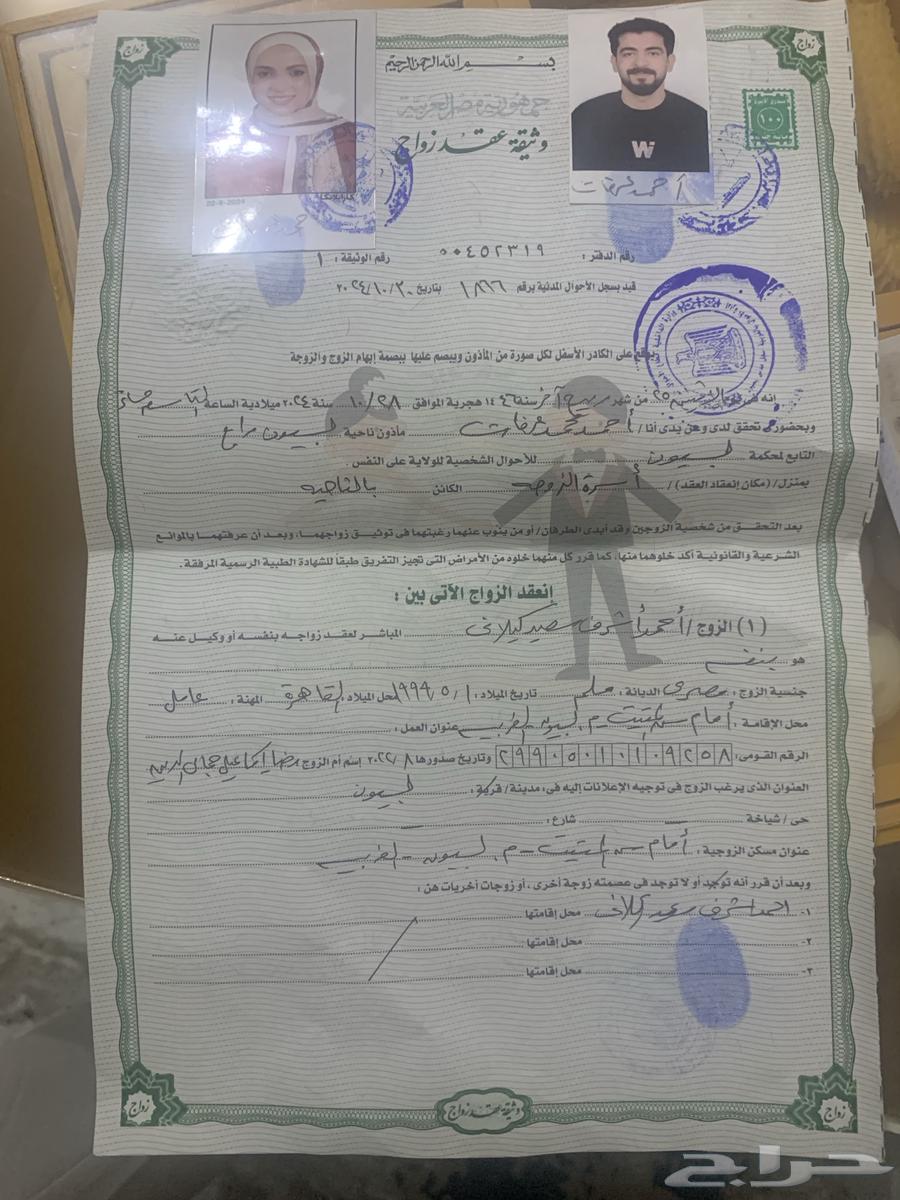 بسم الله الرحمن الرحيم
جمهورية مصر العربية
وثيقة عقد زواج
زواج
زواج
١٠٠
W
22-9-2024
أحمد عرفات
رقم الدفتر : ٠٠٤٥٢٣١٩ رقم الوثيقة : ١
قيد بسجل الأحوال المدنية برقم ١٨٦٦ بتاريخ ٢٠٢٤/١٠/٣٠
يوقع على الكادر الأسفل لكل صورة من المأذون ويبصم عليها ببصمة إبهام الزوج والزوجة
إنه فى يوم الاثنين ٢٥ من شهر ربيع آخر سنة ١٤٤٦ هجرية الموافق ١٠/٢٨ سنة ٢٠٢٤ ميلادية الساعة
وبحضورى تحقق لدى وعن يدى أنا / أحمد محمد عرفات مأذون ناحية بسيون رابع
التابع لمحكمة بسيون للأحوال الشخصية للولاية على النفس .
بمنزل/ (مكان إنعقاد العقد) / أسرة الزوجة الكائن بالناحية
بعد التحقق من شخصية الزوجين وقد أبدى الطرفان/ أو من ينوب عنهما رغبتهما فى توثيق زواجهما، وبعد أن عرفتهما بالموانع
الشرعية والقانونية أكد خلوهما منها، كما قرر كل منهما خلوه من الأمراض التى تجيز التفريق طبقاً للشهادة الطبية الرسمية المرفقة .
إنعقد الزواج الآتى بين :
(١) الزوج / أحمد أشرف سعيد كيلانى المباشر لعقد زواجه بنفسه أو وكيل عنه
هو بنفسه
جنسية الزوج : مصرى الديانة : مسلم تاريخ الميلاد : ١٩٩٩/٥/١ محل الميلاد : القاهرة المهنة : عامل
محل الإقامة : أمام م. بسيون - الغربية عنوان العمل :
الرقم القومى : ٢٩٩٠٥٠١٠١٠٩٢٥٨ وتاريخ صدورها ٢٠٢٢/٨ إسم أم الزوج رضا إسماعيل
العنوان الذى يرغب الزوج فى توجيه الإعلانات إليه فى : مدينة / قرية : بسيون
حى / شياخة شارع :
عنوان مسكن الزوجية : أمام م. بسيون - الغربية
وبعد أن قرر أنه توجد أو لا توجد فى عصمته زوجة أخرى ، أو زوجات أخريات هن :
١- احمد اشرف سعيد كيلانى محل إقامتها
٢- محل إقامتها
٣- محل إقامتها
زواج
وثيقة عقد زواج
زواج
حراج